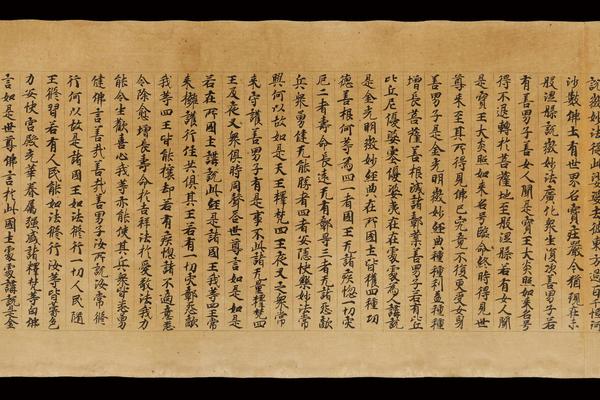 說微妙法從此娑婆去彼東方過百千恒河
沙數佛土有世界名寶莊嚴今猶現在未
般涅槃說微妙法廣化衆生復次善男子若
有善男子善女人聞是寶王大炎照如來名号
得不退轉於菩薩地至般涅槃若有女人聞
是寶王大炎照如來名号臨命終時得見世
尊來至其所得見佛已究竟不復更受女身
善男子是金光明微妙經典種種利益種種
增長菩薩善根滅諸鄣業善男子若有比丘
比丘尼優婆塞優婆夷在在處處爲人講說
是金光明微妙經典在所國土皆獲四種功
德善根何等爲四一者國王无諸疾惱一切灾
厄二者壽命長遠无有鄣导三者无諸怨敵
兵衆勇健无能勝者四者安隱快樂妙法常
興何以故如是天王釋梵四王夜叉之衆常
來守護善男子有是事不此諸无量釋梵四
王及夜叉衆俱時同聲荅世尊言如是如是
若在所國土講說此經是諸國王我等四王常
來擁護行住共俱其王若有一切灾鄣怨敵
我等四王皆能攘却若有疾惱諸不適意悉
令除愈增長壽命於吉祥法於愛敬法我力
能令生歡喜心我等亦能使其兵衆皆悉勇
健佛言善哉善哉善男子汝所說汝當修
行何以故是諸國王如法修行一切人民隨
王修習若有人民能如法修行汝等皆蒙色
力安快宮殿光華眷屬强盛諸釋梵等白佛
言如是世尊佛言於此國土處處講說是金